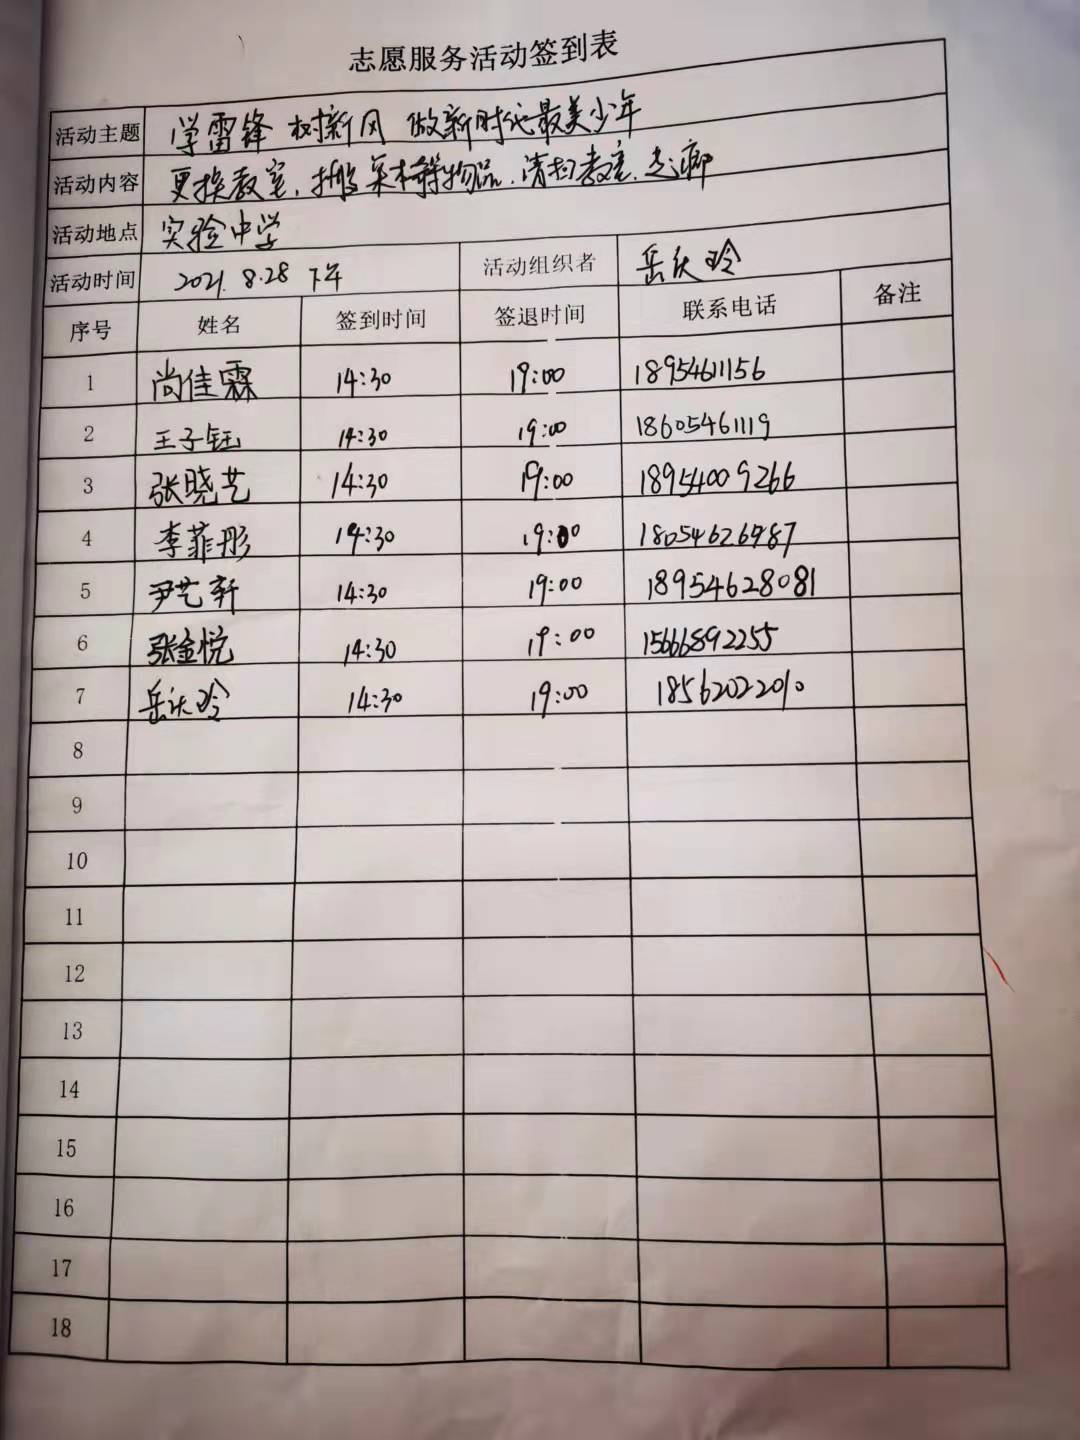 志愿服务活动签到表
活动主题 学雷锋 树新风 做新时代最美少年
活动内容 更换教室,搬桌椅等物品,清扫教室,走廊
活动地点 实验中学
活动时间 2021.8.28 下午 活动组织者 岳庆玲
序号 姓名 签到时间 签退时间 联系电话 备注
1 尚佳霖 14:30 19:00 18954611156
2 王子钰 14:30 19:00 18605461119
3 张晓艺 14:30 19:00 18954009266
4 李菲彤 14:30 19:00 18054626987
5 尹艺轩 14:30 19:00 18954628081
6 张金悦 14:30 19:00 15666892255
7 岳庆玲 14:30 19:00 18562022010
8
9
10
11
12
13
14
15
16
17
18